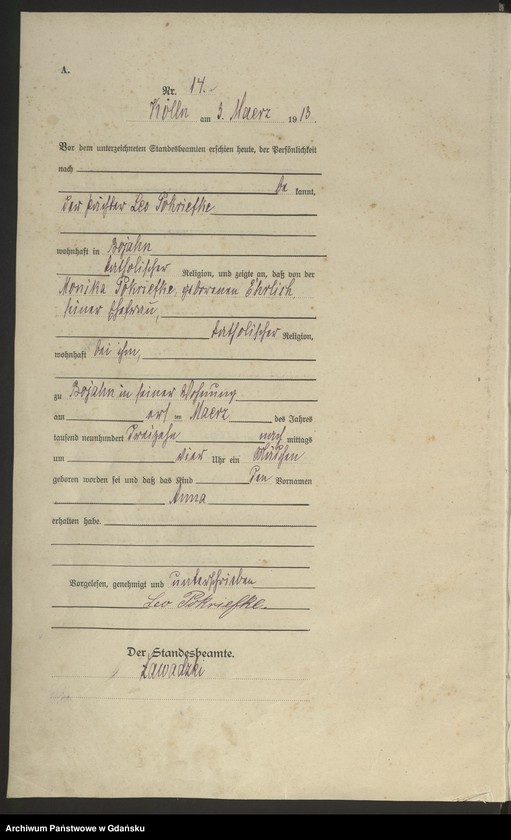 A.
Nr. 14.
Kölln am 3. Maerz 1913.
Vor dem unterzeichneten Standesbeamten erschien heute, der Persönlichkeit
nach
be kannt,
der Pächter Leo Pokriefke
wohnhaft in Bojahn
katholischer Religion, und zeigte an, daß von der
Monika Pokriefke, geborenen Ehrlich
seiner Ehefrau,
katholischer Religion,
wohnhaft bei ihm,
zu Bojahn in seiner Wohnung
am ersten Maerz des Jahres
tausend neunhundert dreizehn nach mittags
um vier Uhr ein Mädchen
geboren worden sei und daß das Kind den Vornamen
Anna
erhalten habe.
Vorgelesen, genehmigt und unterschrieben
Leo Pokriefke.
Der Standesbeamte.
Zawadzki
Archiwum Państwowe w Gdańsku